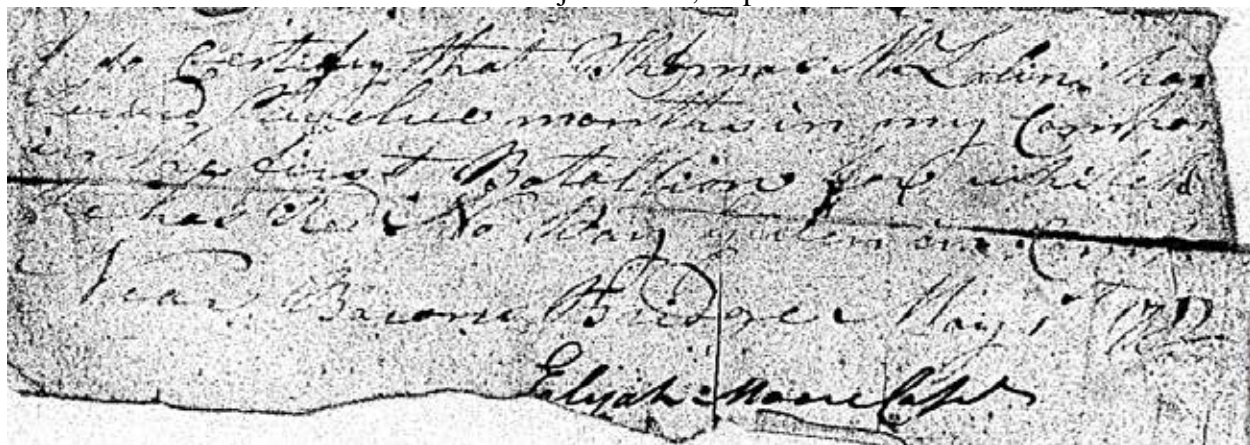 I do Certify that Thomas McLaline has
served Twelve months in my Compan
in the first Batallion for which
he has Rd No Pay given in Camp
Near Bacons Bridge May 1st 1782
Elijah Moore Capt